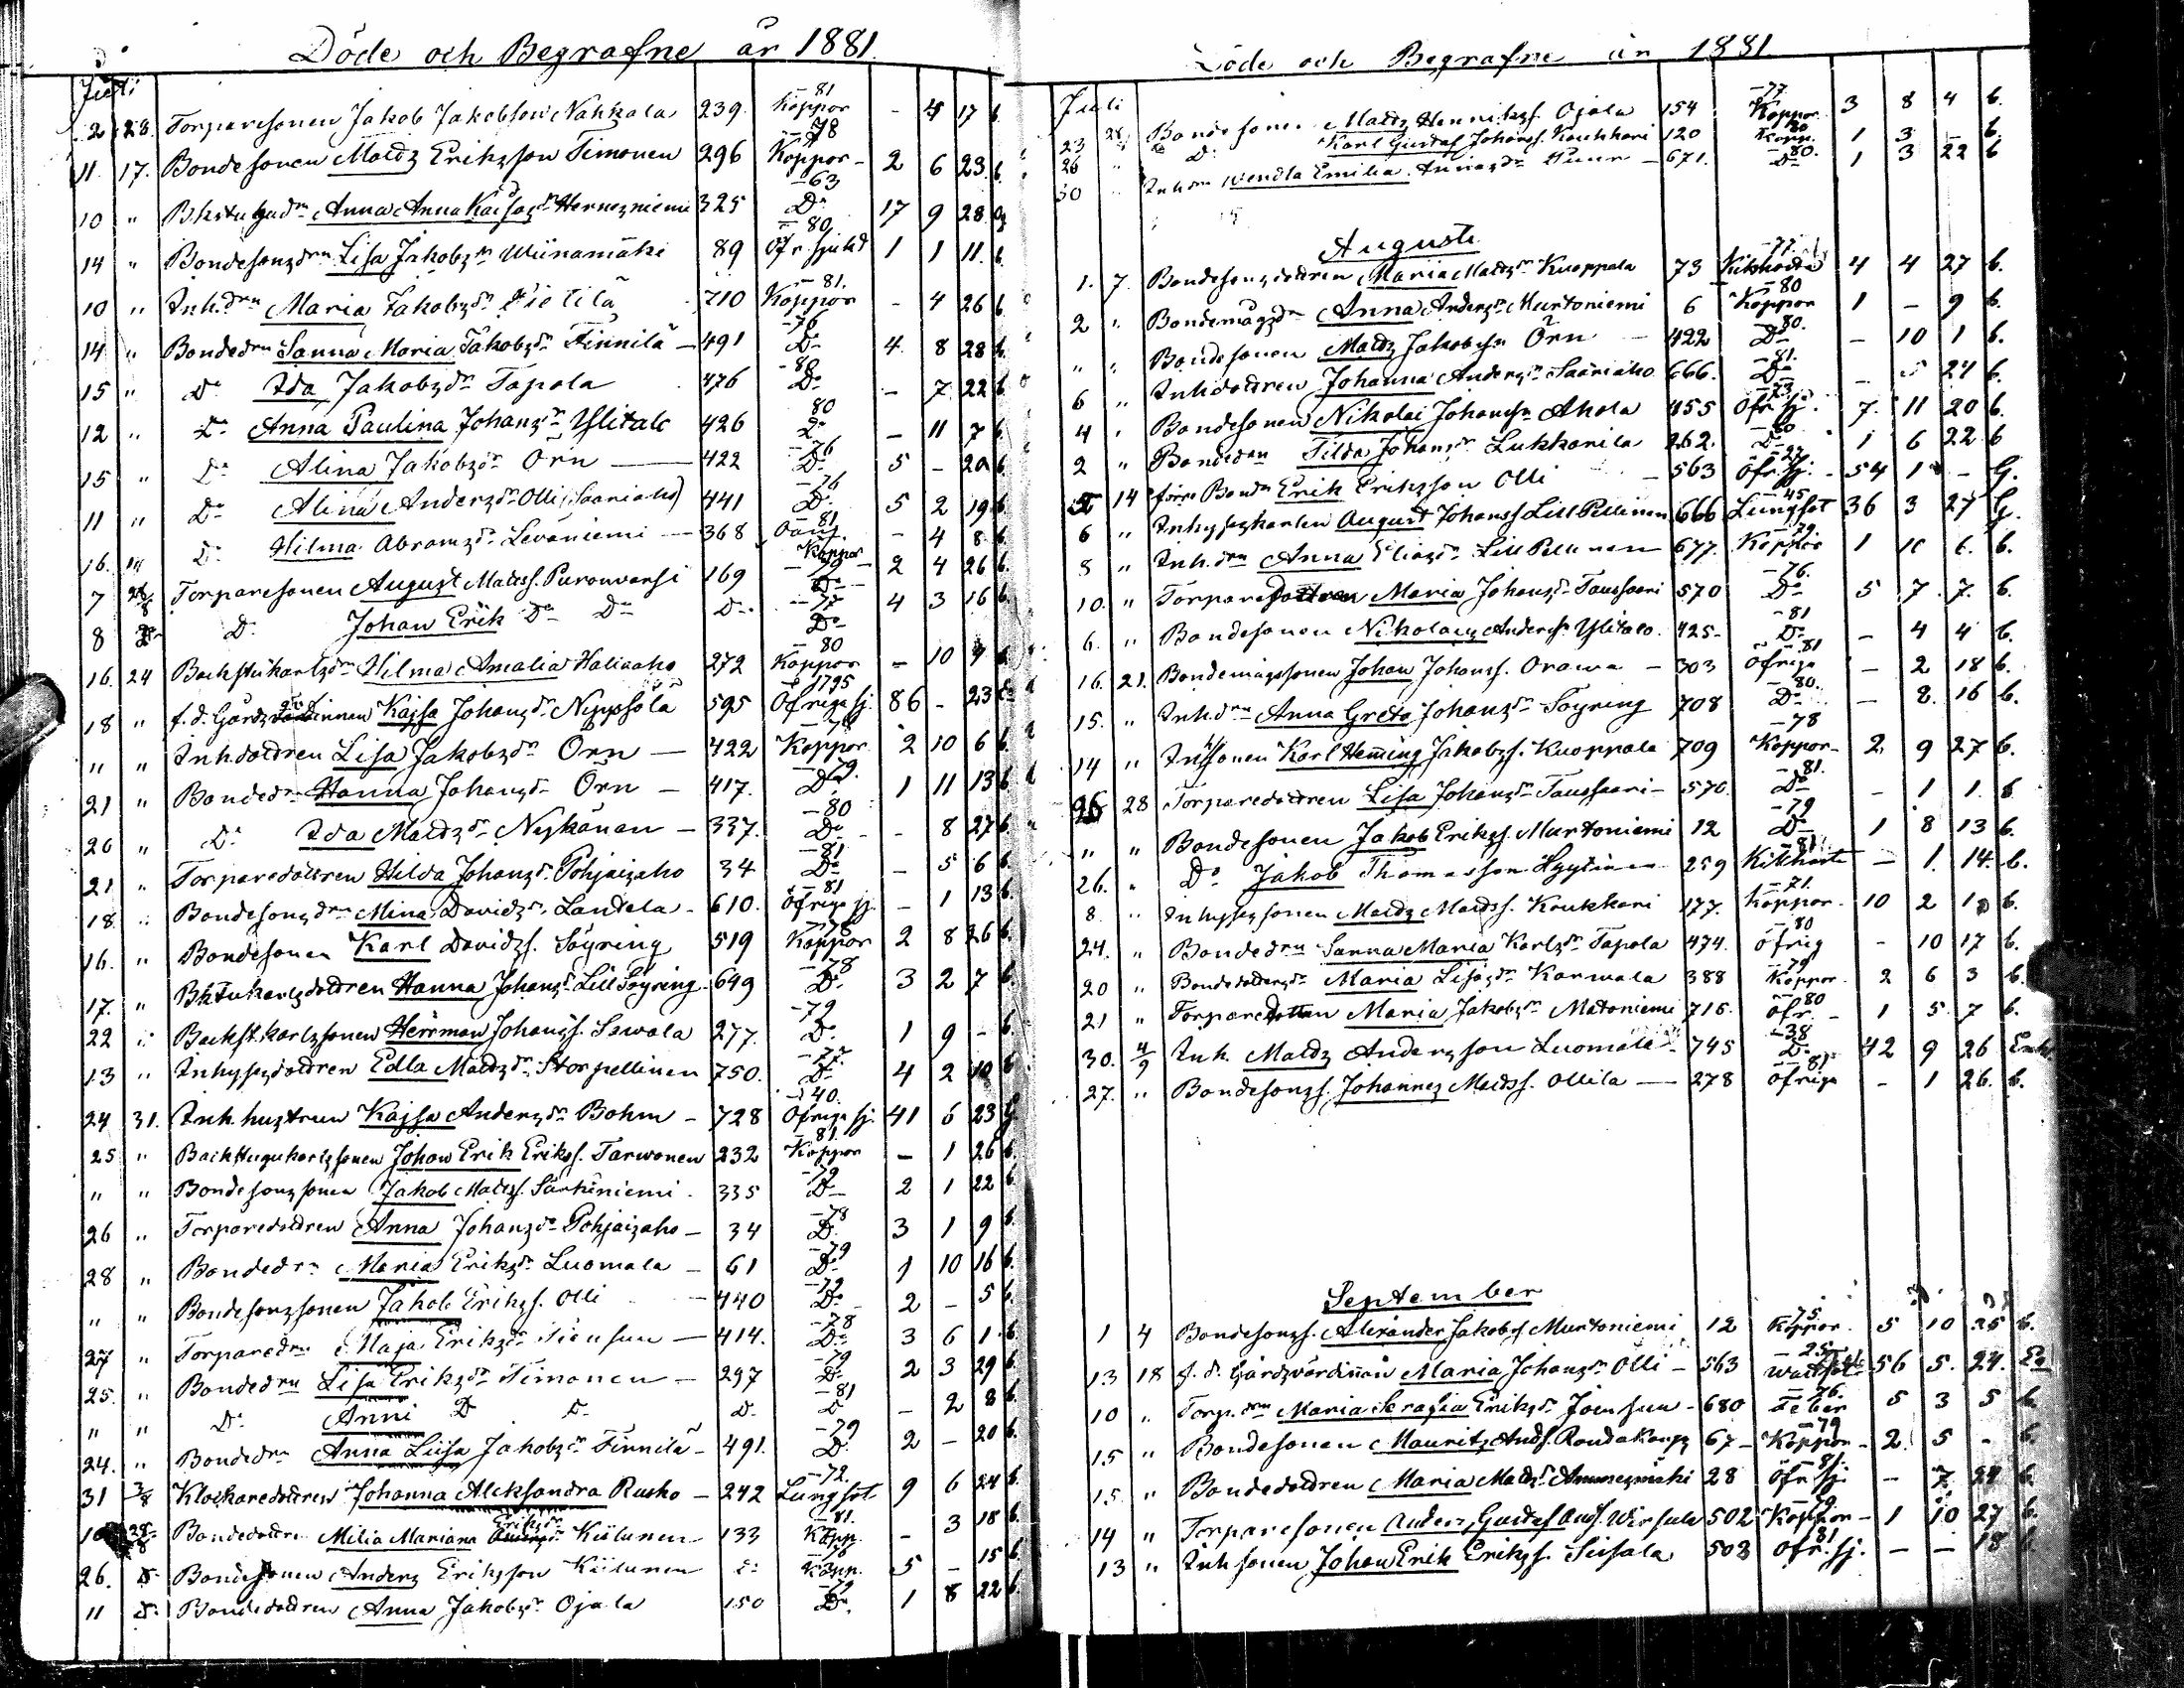 Döde och Begrafne år 1881.
Juli
2 28. Torparesonen Jakob Jakobson Nahkala 239. -81 Koppor - 4 17 b.
11. 17. Bondesonen Matdz Erikzson Timonen 296 -78 Koppor - 2 6 23 b.
10 " Bkstugudrn Anna Anna Kaisazdr Hernezniemi 325 -63 Do 17 9 28 og
14 " Bondesonzdrn Lisa Jakobzdr Wiinamäki 89 -80 Öfr. sjukd 1 1 11. b.
10 " Inh.drn Maria Jakobzdr Pietilä 710 -81. Koppor - 4 26 b
14 " Bondedrn Sanna Maria Jakobzdr Finnilä - 491 -76 Do 4 8 28 b.
15 " Do Ida Jakobzdr Tapola 476 -80 Do - 7 22 b
12 " Do Anna Paulina Johanzdr Ylitalo 426 80 Do - 11 7 b.
15 " Do Alina Jakobzdr Örn 422 -76 Do 5 - 20 b.
11 " Do Alina Anderzdr Olli (Saariaho) 441 -76 Do 5 2 19 b.
16. 14 Do Hilma Abramzdr Leväniemi 368 81 - 4 8 b.
7 28/8 Torparesonen August Matdss. Puronvarsi 169 Koppor 2 4 26 b.
8 Do Johan Erik Do Do Do -77 Do 4 3 16 b.
16. 24 Backstukarlzdrn Hilma Amalia Haliaaho 272 -80 Koppor - 10 9 b
18 " f. d. Gårdzvärdinnan Kajsa Johanzdr Nyyssölä 595 1795 Öfriga sj. 86 - 23
" " Inhdottren Lisa Jakobzdr Örn - 422 -78 Koppor 2 10 6 b.
21 " Bondedrn Hanna Johanzdr Örn - 417. -79. Do 1 11 13 b
20 " Do Ida Matdzdr Nykänen - 337. -80 Do - 8 27 b.
21 " Torparedottren Hilda Johanzdr Pohjaizaho 34 -81 Do - 5 6 b
18. " Bondesonzdrn Mina Davidzdr Lantela - 610. -81 Öfriga sj. - 1 13 b.
16. " Bondesonen Karl Davidzs. Söyring 519 -78 Koppor 2 8 26 b.
17. " Bkstukarlzdottren Hanna Johanzdr Lill Söyring 649 -78 Do 3 2 7 b.
22 " Backst.karlzsonen Herrman Johanss. Sawola 277. -79 Do 1 9 - b.
13 " Inhyszdottren Edla Matdzdr Storpellinen 750. -77 Do 4 2 10 b
24 31. Inh. huztrun Kajsa Anderzdr Bohm - 728 -40. Öfriga sj. 41 6 23 G
25 " Backstugukarlzsonen Johan Erik Erikss. Tarwonen 232 -81. Koppor - 1 26 b
" " Bondesonzsonen Jakob Matdzs. Särkiniemi 335 -79 Do 2 1 22 b
26 " Torparedottren Anna Johanzdr Pohjaizaho - 34 -78 Do 3 1 9 b.
28 " Bondedrn Maria Erikzdr Luomala - 61 -79 Do 1 10 16 b.
" " Bondesonzsonen Jakob Erikzs. Olli - 440 -79 Do 2 - 5 b.
27 " Torparedrn Maja Erikzdr Joensuu - 414. -78 Do 3 6 1 b
25. " Bondedrn Lisa Erikzdr Timonen - 297 -79 Do 2 3 29 b
" " Do Anni D Do Do -81 D - 2 8 b.
24. " Bondedrn Anna Liisa Jakobzdr Finnilä - 491. -79 Do 2 - 20 b
31 7/8 Klockaredottren Johanna Aleksandra Rusko - 242 -72. Lungsot 9 6 24 b.
10 28/8 Bondedottrn Milia Mariana Erikzdr Kiilunen 133 -81. Kopp - 3 18 b.
26. Do Bondesonen Anderz Erikzson Kiilunen Do Kopp. 5 - 15 b.
11 Do Bondedottren Anna Jakobzdr Ojala 150 -79 Do 1 8 22 b.
Döde och Begrafne år 1881
Juli
23 28/8 Bondesonen Matdz Henrikzs. Ojala 154 -77. Koppor 3 8 4 b.
26 " Do Karl Gustaf Johanss. Koukkari 120 80 Kopp. 1 3 - b.
30 " Inhdrn Wendla Emilia - 671. -80. Do 1 3 22 b
Augusti
1. 7. Bondesonzdottren Maria Matdzdr Kuoppala 73 -77. Kikhosta 4 4 27 b.
2 " Bondemågzdr Anna Anderzdr Murtoniemi 6 -80 Koppor 1 - 9 b.
" " Bondesonen Matdz Jakobzson Örn - 422 80. Do - 10 1 b.
6 " Inhdottren Johanna Anderzdr Saariaho 666. -81. Do - 5 24 b.
4 " Bondesonen Nikolai Johansson Ahola 455 -73 Öfr. sj. 7. 11 20 b.
2 " Bondedrn Tilda Johanzdr Lukkarila 262. -80 Do 1 6 22 b
5 14 förre Bondn Erik Erikzson Olli - 563 -27 Öfr. sj. - 54 1 - G.
6 " Inhyszkarlen August Johanss Lill Pellinen 666 -45 Lungsot 36 3 27 G.
8 " Inh.drn Anna Eliazdr Lill Pellinen 677. -79. Koppor 1 10 6. b.
10. " Torparedottren Maria Johanzdr Taussaari 570 -76. Do 5 7. 7. b.
6. " Bondesonen Nikolauz Anderss. Ylitalo. 425- -81 Do - 4 4 b.
16. 21. Bondemågssonen Johan Johanss. Orawa - 303 -81 Öfriga - 2 18 b.
15. " Inh.drn Anna Greta Johanzdr Söyring 708 -80. Do - 8. 16 b.
14 " Inhsonen Karl Henning Jakobzs. Kuoppala 709 -78 Koppor - 2 9 27 b.
26 28 Torparedottren Lisa Johanzdr Taussaari - 570. -81. Do - 1 1. b
" " Bondesonen Jakob Erikzs. Murtoniemi 12 -79 Do 1 8 13 b.
26. " Do Jakob Thomasson Hyytinen 259 -81. Kikhosta - 1. 14. b.
8. " Inhyszsonen Matdz Matdss. Koukkari 177. -71. Koppor. 10 2 10 b.
24. " Bondedrn Sanna Maria Karlzdr Tapola 474. -80 Öfrig - 10 17 b.
20 " Bondedotterzdr Maria Lisazdr Karwala 388 -79 Koppor. 2 6 3 b.
21 " Torparedottren Maria Jakobzdr Matoniemi 715. -80 Öfr. - 1 5. 7 b.
30. 4/9 Inh. Matdz Anderzson Luomala - 745 -38 Do 42 9 26 Enkl
27. " Bondesonzs. Johannez Matdss. Ollila - 278 -81 Öfriga - 1 26. b.
September
1 4 Bondesonzs. Alexander Jakobzs Murtoniemi 12 75. Koppor. 5 10 25 b.
13 18 f. d. Gårdzvärdinnan Maria Johanzdr Olli - 563 -25 Wattsot 56 5. 24.
10 " Torp.drn Maria Serafia Erikzdr Joensuu - 680 -76. Feber 5 3 5 b.
15 " Bondesonen Mauritz Ands. Raudaskoski 67 -79 Koppor - 2. 5 - b.
15. " Bondedottren Maria Matdzdr Ammezmäki 28 81 Öfr. sj. - 7. 24 b.
14 " Torparesonen Anderz Gustaf Ands. Wirsula 502 -79 Koppor - 1 10 27 b.
13 " Inhsonen Johan Erik Erikzs. Seisala 503 81 Öfr. sj. - - 18 b.